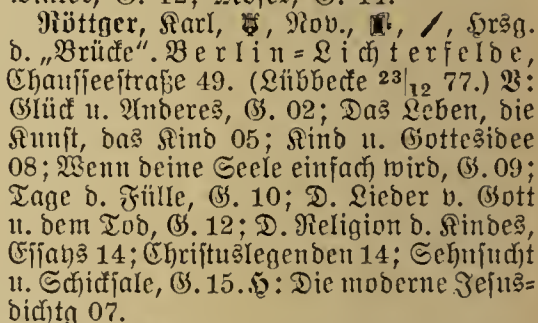 Röttger, Karl, Nov., Hrsg.
d. „Brücke“. Berlin=Lichterfelde,
Chausseestraße 49. (Lübbecke 23|12 77.) V:
Glück u. Anderes, G. 02; Das Leben, die
Kunst, das Kind 05; Kind u. Gottesidee
08; Wenn deine Seele einfach wird, G. 09;
Tage d. Fülle, G. 10; D. Lieder v. Gott
u. dem Tod, G. 12; D. Religion d. Kindes,
Essays 14; Christuslegenden 14; Sehnsucht
u. Schicksale, G. 15. H: Die moderne Jesus=
dichtg 07.